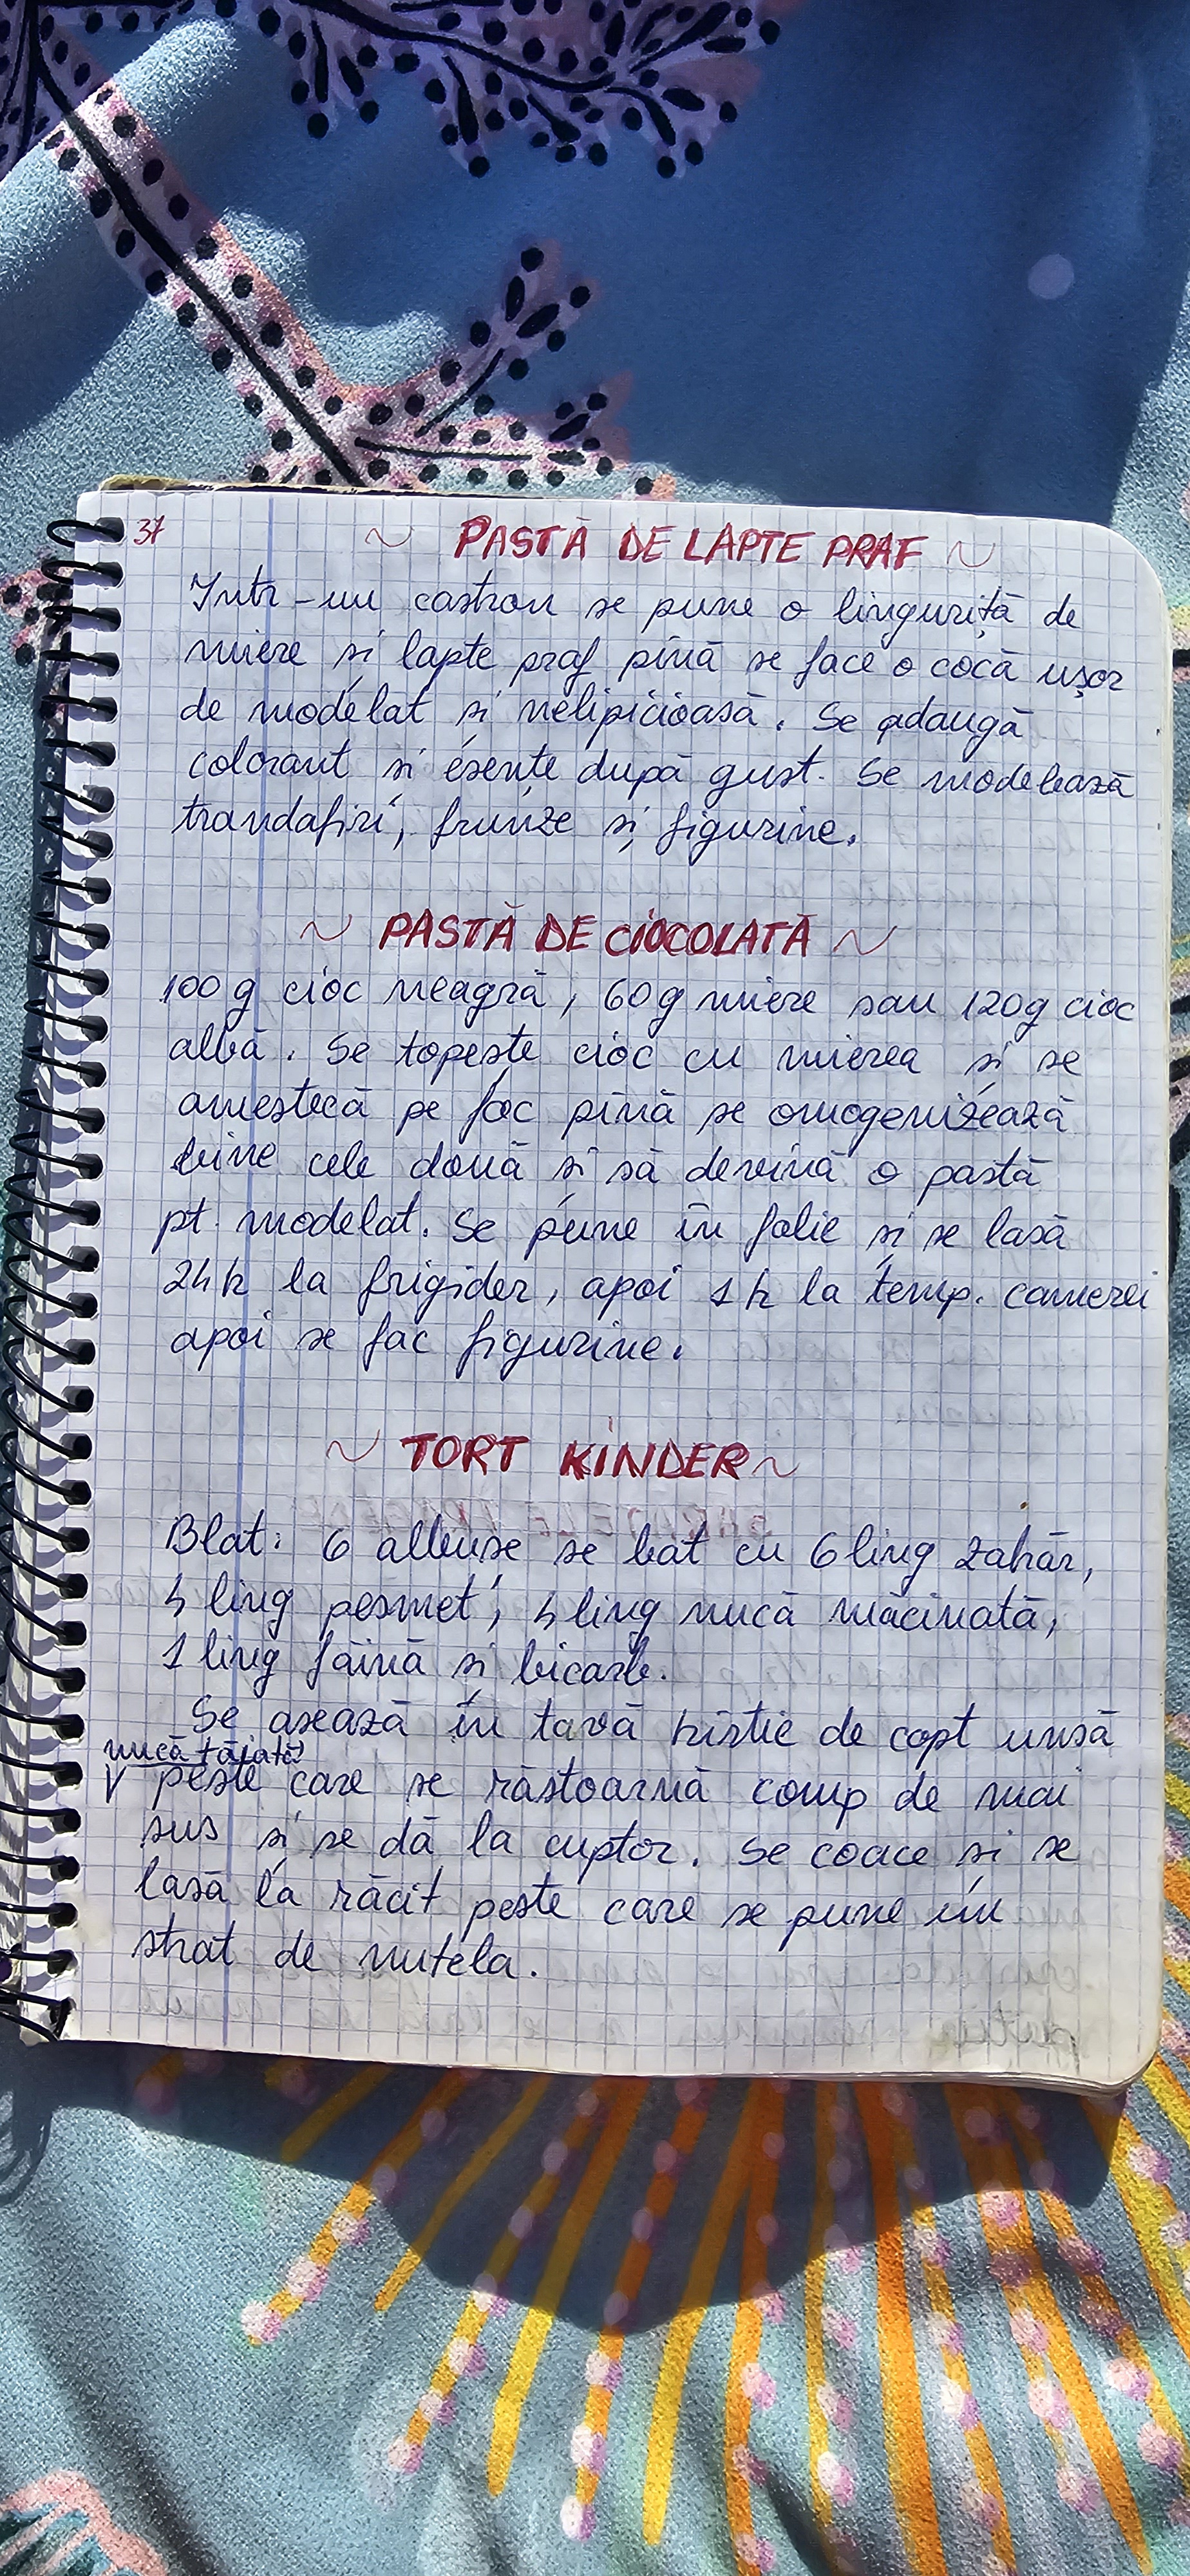 37
~ PASTĂ DE LAPTE PRAF ~
Într-un castron se pune o linguriță de
miere și lapte praf pînă se face o cocă ușor
de modelat și nelipicioasă. Se adaugă
colorant și esențe după gust. Se modelează
trandafiri, frunze și figurine.
~ PASTĂ DE CIOCOLATĂ ~
100 g cioc neagră, 60 g miere sau 120 g cioc
albă. Se topește cioc cu mierea și se
amestecă pe foc pînă se omogenizează
bine cele două și să devină o pastă
pt. modelat. Se pune în folie și se lasă
24 h la frigider, apoi 1 h la temp. camerei
apoi se fac figurine.
~ TORT KINDER ~
Blat: 6 albușe se bat cu 6 ling zahăr,
4 ling pesmet, 4 ling nucă măcinată,
1 ling făină și bicarb.
Se așează în tavă hîrtie de copt unsă
nucă tăiată
V peste care se răstoarnă comp de mai
sus și se dă la cuptor. Se coace și se
lasă la răcit peste care se pune un
strat de nutela.